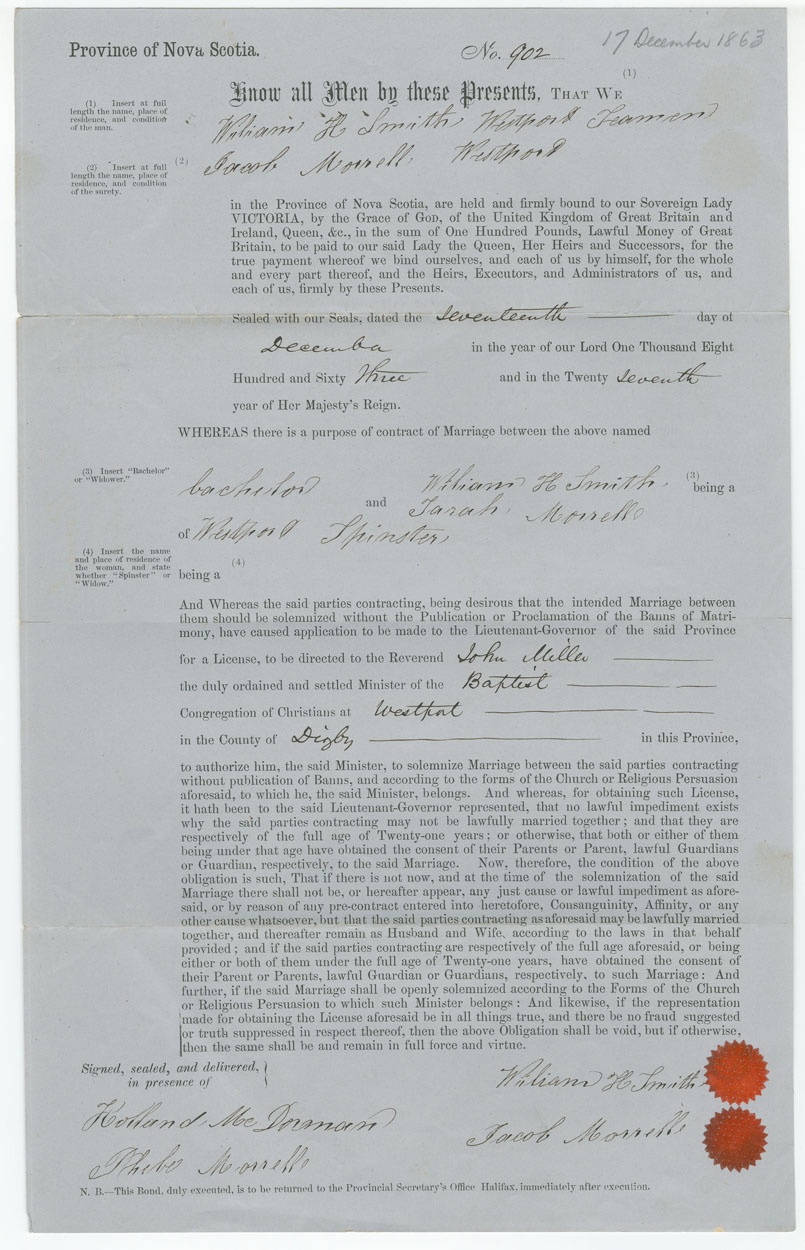 17 December 1863
Province of Nova Scotia.
No. 902
(1)
Know all Men by these Presents, THAT WE
(1) Insert at full
length the name, place of
residence, and condition
of the man.
Wiliam H Smith Westport Seamen
(2) Insert at full
length the name, place of
residence, and condition
of the surety.
(2)
Jacob Morrell Westport
in the Province of Nova Scotia, are held and firmly bound to our Sovereign Lady
VICTORIA, by the Grace of GOD, of the United Kingdom of Great Britain and
Ireland, Queen, &c., in the sum of One Hundred Pounds, Lawful Money of Great
Britain, to be paid to our said Lady the Queen, Her Heirs and Successors, for the
true payment whereof we bind ourselves, and each of us by himself, for the whole
and every part thereof, and the Heirs, Executors, and Administrators of us, and
each of us, firmly by these Presents.
Sealed with our Seals, dated the Seventeenth day of
December in the year of our Lord One Thousand Eight
Hundred and Sixty Three and in the Twenty Seventh
year of Her Majesty's Reign.
WHEREAS there is a purpose of contract of Marriage between the above named
(3) Insert "Bachelor"
or "Widower."
Wiliam H Smith (3) being a
bachelor and Sarah Morrell
of Westport Spinster
(4) Insert the name
and place of residence of
the woman, and state
whether "Spinster" or
"Widow."
(4)
being a
And Whereas the said parties contracting, being desirous that the intended Marriage between
them should be solemnized without the Publication or Proclamation of the Banns of Matri-
mony, have caused application to be made to the Lieutenant-Governor of the said Province
for a License, to be directed to the Reverend John Miller
the duly ordained and settled Minister of the Baptist
Congregation of Christians at Westport
in the County of Digby in this Province,
to authorize him, the said Minister, to solemnize Marriage between the said parties contracting
without publication of Banns, and according to the forms of the Church or Religious Persuasion
aforesaid, to which he, the said Minister, belongs. And whereas, for obtaining such License,
it hath been to the said Lieutenant-Governor represented, that no lawful impediment exists
why the said parties contracting may not be lawfully married together; and that they are
respectively of the full age of Twenty-one years; or otherwise, that both or either of them
being under that age have obtained the consent of their Parents or Parent, lawful Guardians
or Guardian, respectively, to the said Marriage. Now, therefore, the condition of the above
obligation is such, That if there is not now, and at the time of the solemnization of the said
Marriage there shall not be, or hereafter appear, any just cause or lawful impediment as afore-
said, or by reason of any pre-contract entered into heretofore, Consanguinity, Affinity, or any
other cause whatsoever, but that the said parties contracting as aforesaid may be lawfully married
together, and thereafter remain as Husband and Wife, according to the laws in that behalf
provided; and if the said parties contracting are respectively of the full age aforesaid, or being
either or both of them under the full age of Twenty-one years, have obtained the consent of
their Parent or Parents, lawful Guardian or Guardians, respectively, to such Marriage: And
further, if the said Marriage shall be openly solemnized according to the Forms of the Church
or Religious Persuasion to which such Minister belongs: And likewise, if the representation
made for obtaining the License aforesaid be in all things true, and there be no fraud suggested
or truth suppressed in respect thereof, then the above Obligation shall be void, but if otherwise,
then the same shall be and remain in full force and virtue.
Signed, sealed, and delivered,
in presence of
Wiliam H Smith
Holland McDorman
Jacob Morrell
Phebe Morrell
N. B.—This Bond, duly executed, is to be returned to the Provincial Secretary's Office Halifax, immediately after execution.